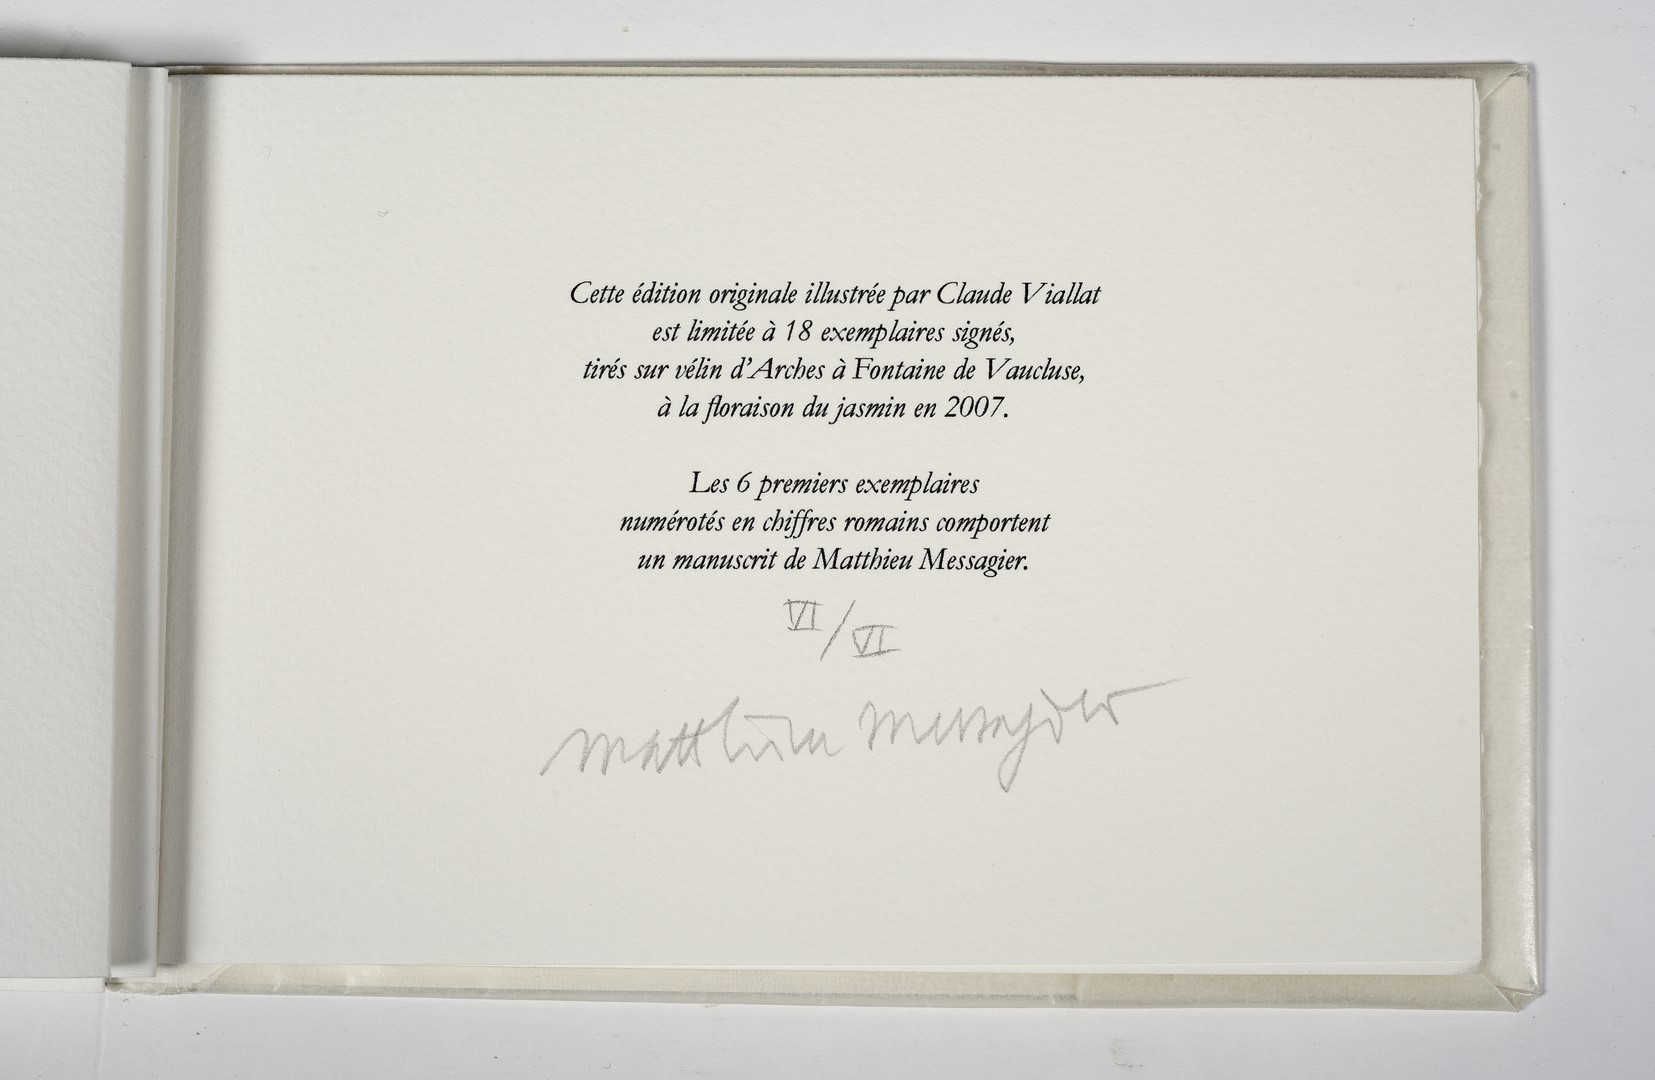 Cette édition originale illustrée par Claude Viallat
est limitée à 18 exemplaires signés,
tirés sur vélin d'Arches à Fontaine de Vaucluse,
à la floraison du jasmin en 2007.
Les 6 premiers exemplaires
numérotés en chiffres romains comportent
un manuscrit de Matthieu Messagier.
VI/VI
Matthieu Messagier